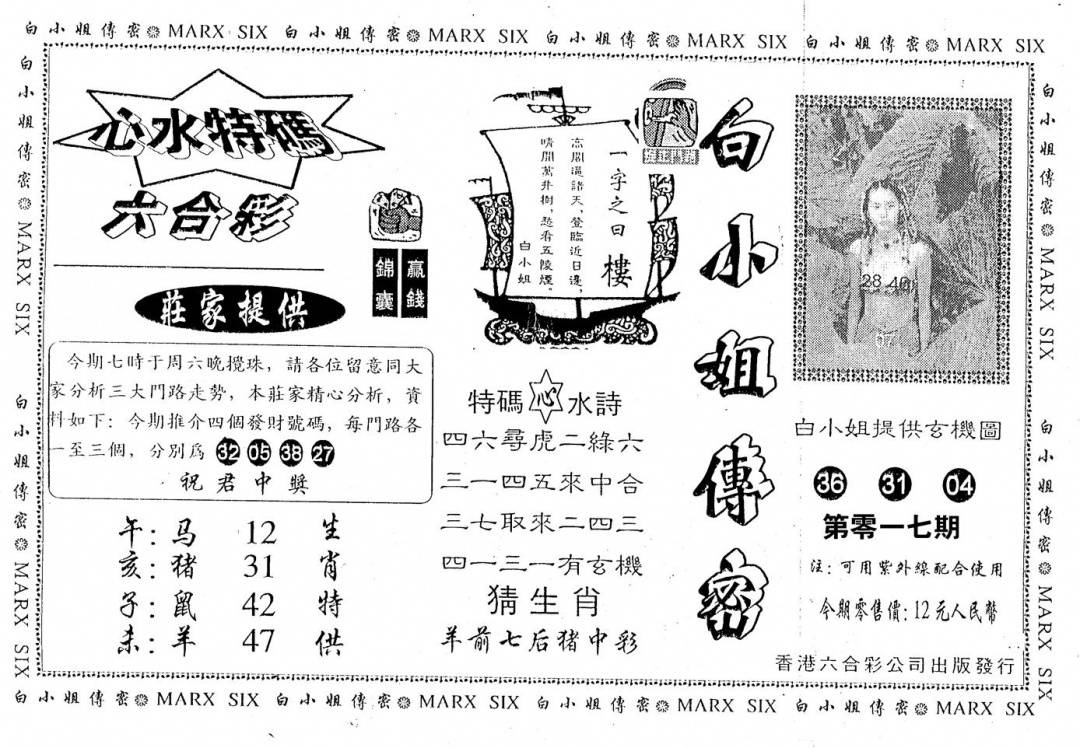 白小姐傳密 MARX SIX 白小姐傳密 MARX SIX 白小姐傳密 MARX SIX 白小姐傳密 MARX SIX
白小姐傳密 MARX SIX 白小姐傳密 MARX SIX
心水特碼
六合彩
錦囊
贏錢
莊家提供
今期七時于周六晚攪珠，請各位留意同大
家分析三大門路走勢，本莊家精心分析，資
料如下：今期推介四個發財號碼，每門路各
一至三個，分別爲 32 05 38 27
祝君中獎
午：马 12
亥：猪 31
子：鼠 42
未：羊 47
生肖特供
一字之曰 樓
高閣逼諸天，登臨近日邊，
晴開萬井樹，愁看五陵煙。
白小姐
特碼心水詩
四六尋虎二綠六
三一四五來中合
三七取來二四三
四一三一有玄機
猜生肖
羊前七后猪中彩
白小姐傳密
28.40
07
白小姐提供玄機圖
36 31 04
第零一七期
注：可用紫外線配合使用
今期零售價：12元人民幣
香港六合彩公司出版發行
白小姐傳密 MARX SIX 白小姐傳密 MARX SIX
白小姐傳密 MARX SIX 白小姐傳密 MARX SIX 白小姐傳密 MARX SIX 白小姐傳密 MARX SIX